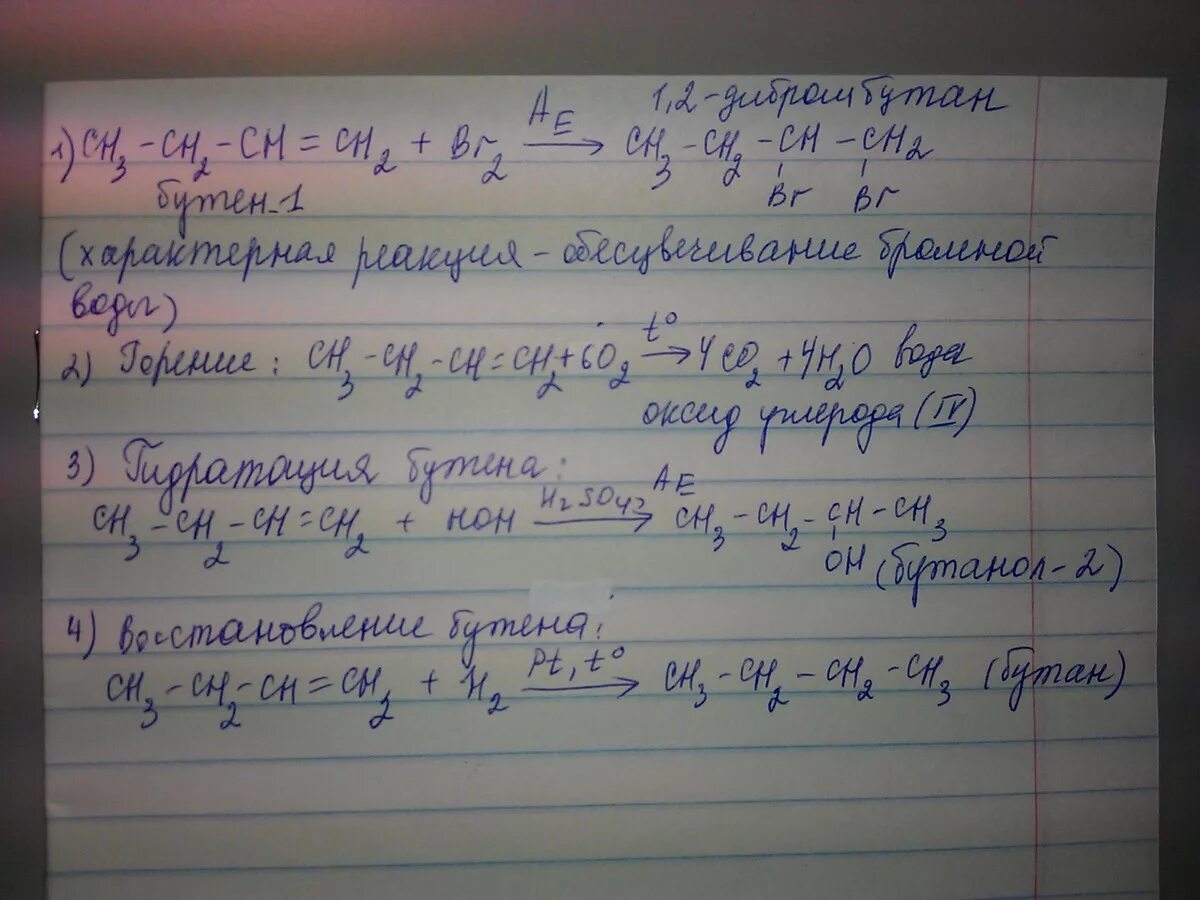 1,2-дибромбутан
1) CH₃-CH₂-CH=CH₂ + Br₂ →(AE) CH₃-CH₂-CH-CH₂
бутен-1 Br Br
(характерная реакция - обесцвечивание бромной
воды)
2) Горение: CH₃-CH₂-CH=CH₂+6O₂ →(t°) 4CO₂+4H₂O вода
оксид углерода (IV)
3) Гидратация бутена:
CH₃-CH₂-CH=CH₂ + HOH →(H₂SO₄, AE) CH₃-CH₂-CH-CH₃
OH (бутанол-2)
4) Восстановление бутена:
CH₃-CH₂-CH=CH₂ + H₂ →(Pt, t°) CH₃-CH₂-CH₂-CH₃ (бутан)